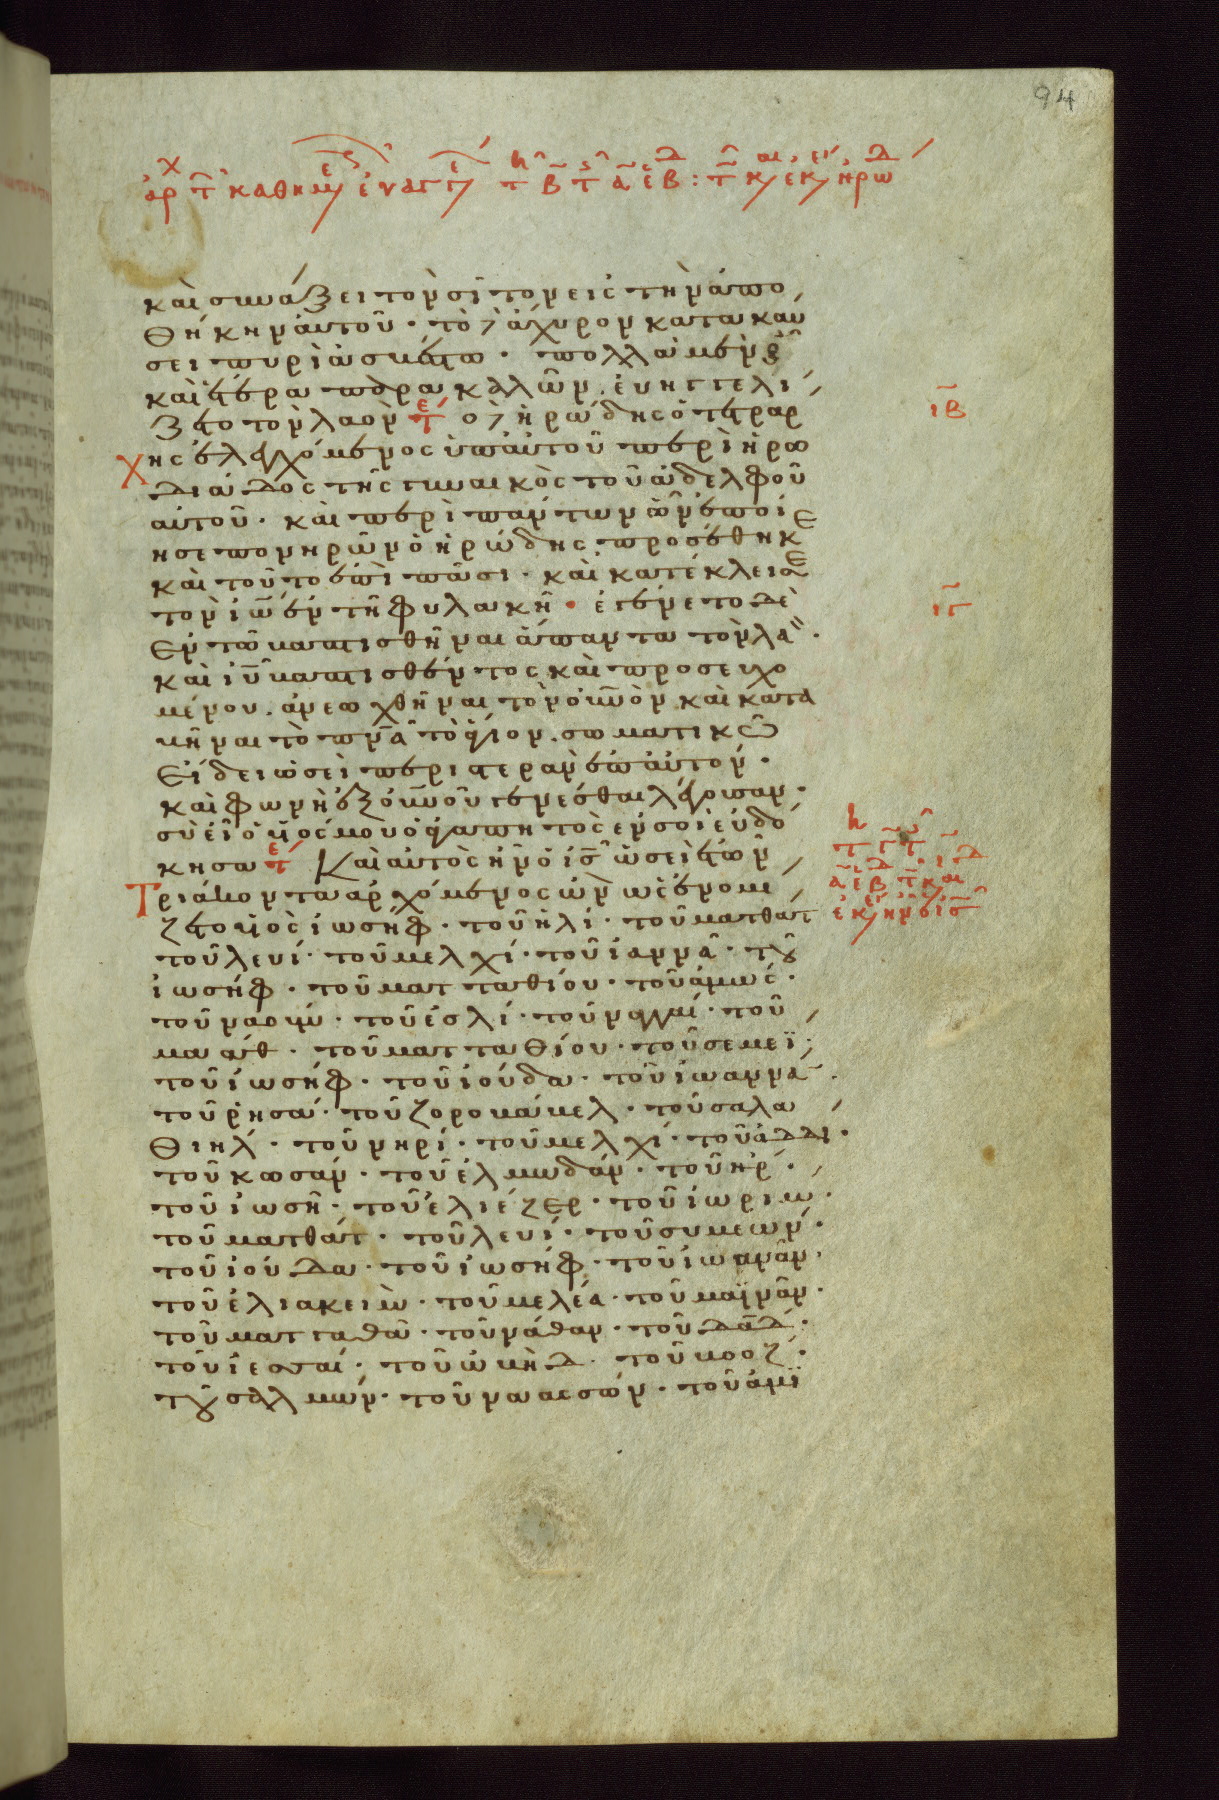 94
καὶ συνάξει τὸν σῖτον εἰς τὴν ἀπο
θήκην αὐτοῦ · τὸ δ ἄχυρον κατακαύ
σει πυρὶ ἀσβέστω · πολλὰ μὲν οὖν
καὶ ἕτερα παρακαλῶν εὐηγγελί
ζετο τὸν λαὸν τε ο δ ἡρώδης ὁ τετραρ
χης ἐλεγχόμενος ὑπ αὐτοῦ περὶ ἡρω
διάδος τῆς γυναικὸς τοῦ ἀδελφοῦ
αὐτοῦ · καὶ περὶ πάντων ὧν ἐποί
ησε πονηρῶν ὁ ἡρώδης προσέθηκε
καὶ τοῦτο ἐπὶ πᾶσι · καὶ κατέκλεισε
τὸν ἰω ἐν τῆ φυλακῆ · ἐγένετο δὲ
ιβ
ιγ
ἐν τῶ βαπτισθῆναι ἅπαντα τὸν λα ·
καὶ ιυ βαπτισθέντος καὶ προσευχο
μένου ἀνεωχθῆναι τὸν οὐνὸν καὶ κατα
βῆναι τὸ πνα τὸ ἅγιον σωματικῶ
εἴδει ὡσεὶ περιστερὰν ἐπ αὐτόν ·
καὶ φωνὴ ἐξ οὐνοῦ γενέσθαι λέγουσαν ·
σὺ εἶ ὁ υἱός μου ὁ ἀγαπητὸς ἐν σοὶ εὐδό
κησα τε Καὶ αὐτὸς ἦν ὁ ις ὡσεὶ ἐτῶν
τριάκοντα ἀρχόμενος ὢν ὡς ἐνομί
ζετο υἱὸς ἰωσήφ · τοῦ ἡλί · τοῦ ματθάτ
τοῦ λευί · τοῦ μελχί · τοῦ ἰαννᾶ · τοῦ
ἰωσήφ · τοῦ ματταθίου · τοῦ ἀμώς ·
τοῦ ναούμ · τοῦ ἐσλί · τοῦ ναγγαί · τοῦ
μαάθ · τοῦ ματταθίου · τοῦ σεμεΐ ·
τοῦ ἰωσήφ · τοῦ ἰούδα · τοῦ ἰωαννᾶ ·
τοῦ ῥησά · τοῦ ζοροβάβελ · τοῦ σαλα
θιήλ · τοῦ νηρί · τοῦ μελχί · τοῦ ἀδδί ·
τοῦ κωσάν · τοῦ ἐλμωδάν · τοῦ ἤρ ·
τοῦ ἰωσῆ · τοῦ ἐλιέζερ · τοῦ ἰωρίμ ·
τοῦ ματθάτ · τοῦ λευί · τοῦ συμεών ·
τοῦ ἰούδα · τοῦ ἰωσήφ · τοῦ ἰωανάν ·
τοῦ ἐλιακείμ · τοῦ μελέα · τοῦ μαϊνάν ·
τοῦ ματταθᾶ · τοῦ νάθαν · τοῦ δαδ ·
τοῦ ἰεσσαί · τοῦ ὠβὴδ · τοῦ βοόζ ·
τοῦ σαλμών · τοῦ ναασσών · τοῦ ἀμι